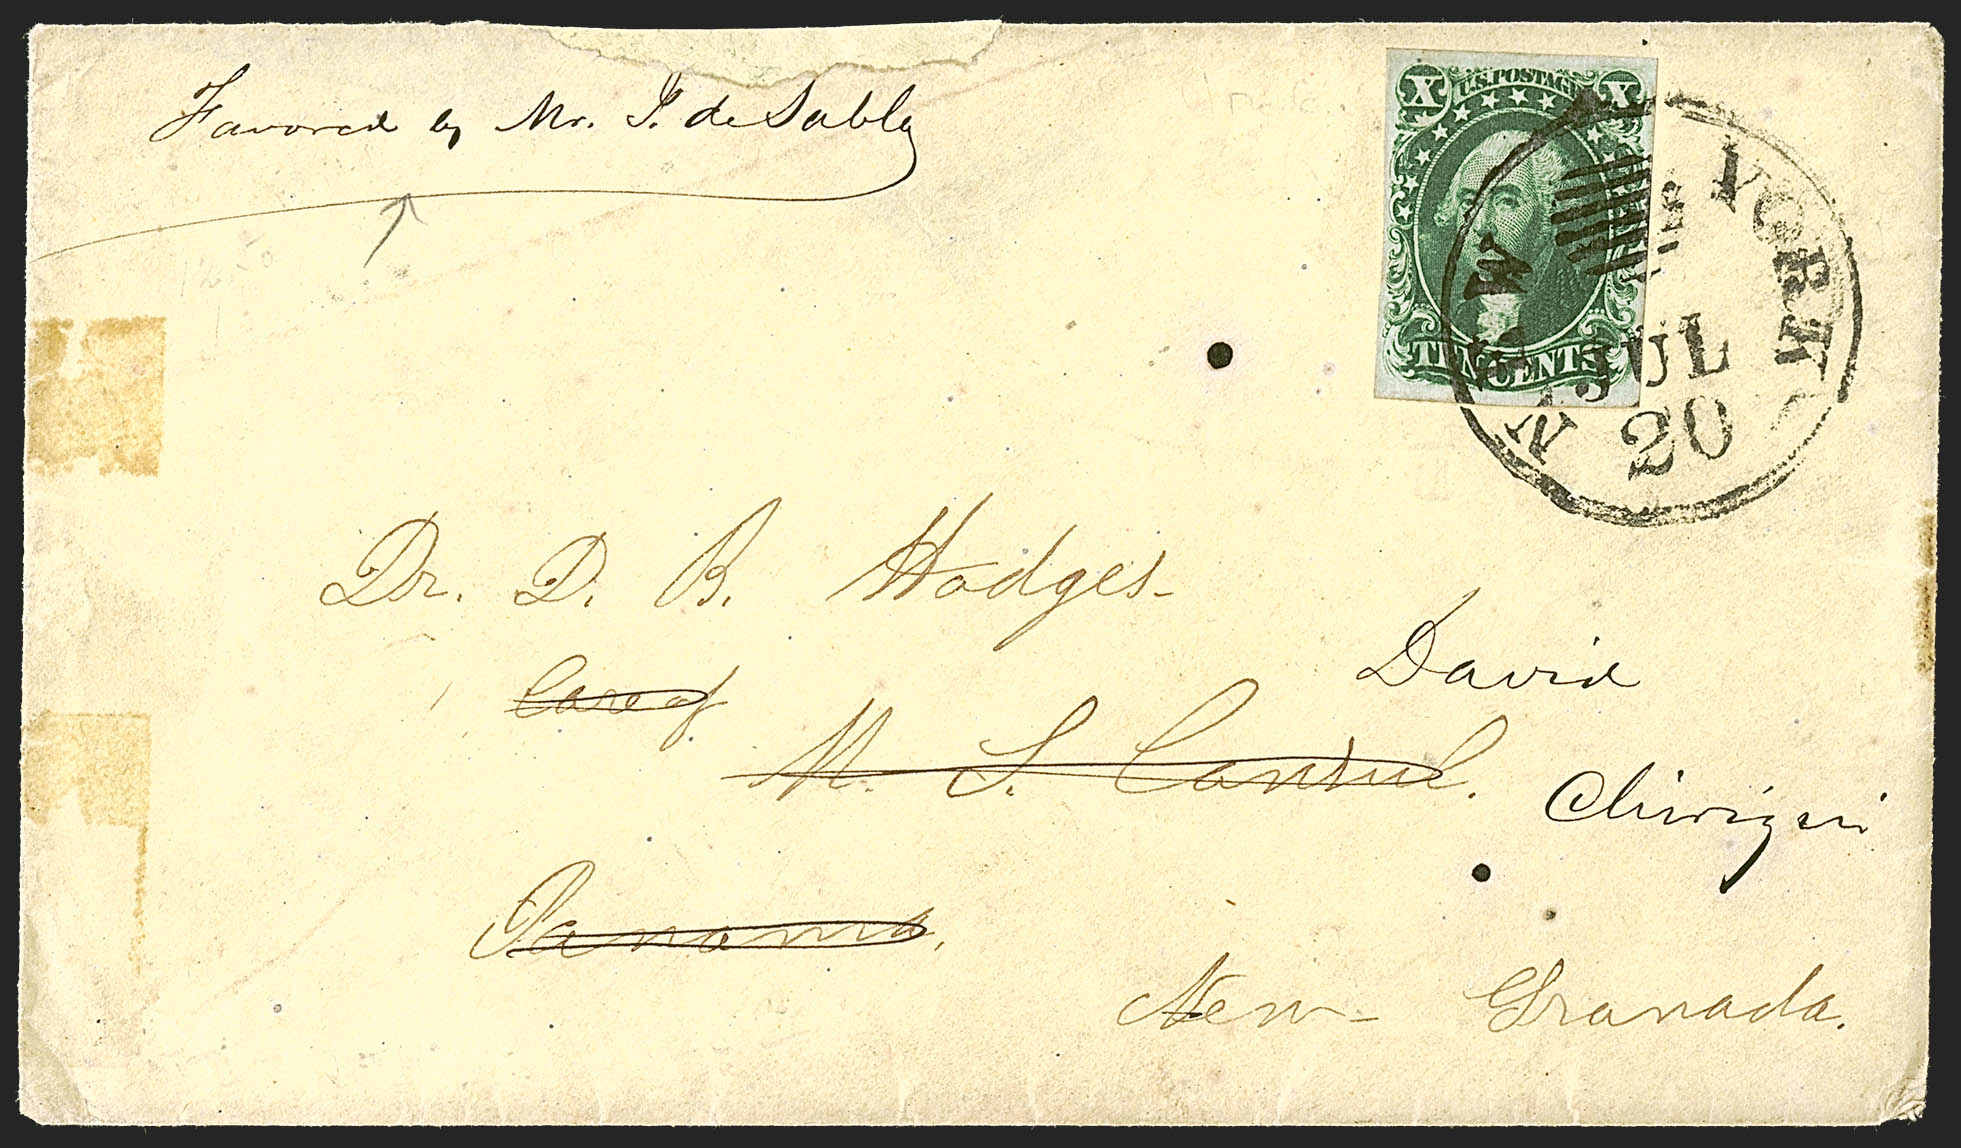 Favored by Mr. J. de Sabla
X U.S. POSTAGE X
TEN CENTS
NEW YORK
JUL
20
Dr. D. B. Hodges
Care of
U. S. Consul.
Panama.
David
Chiriqui
New Granada.